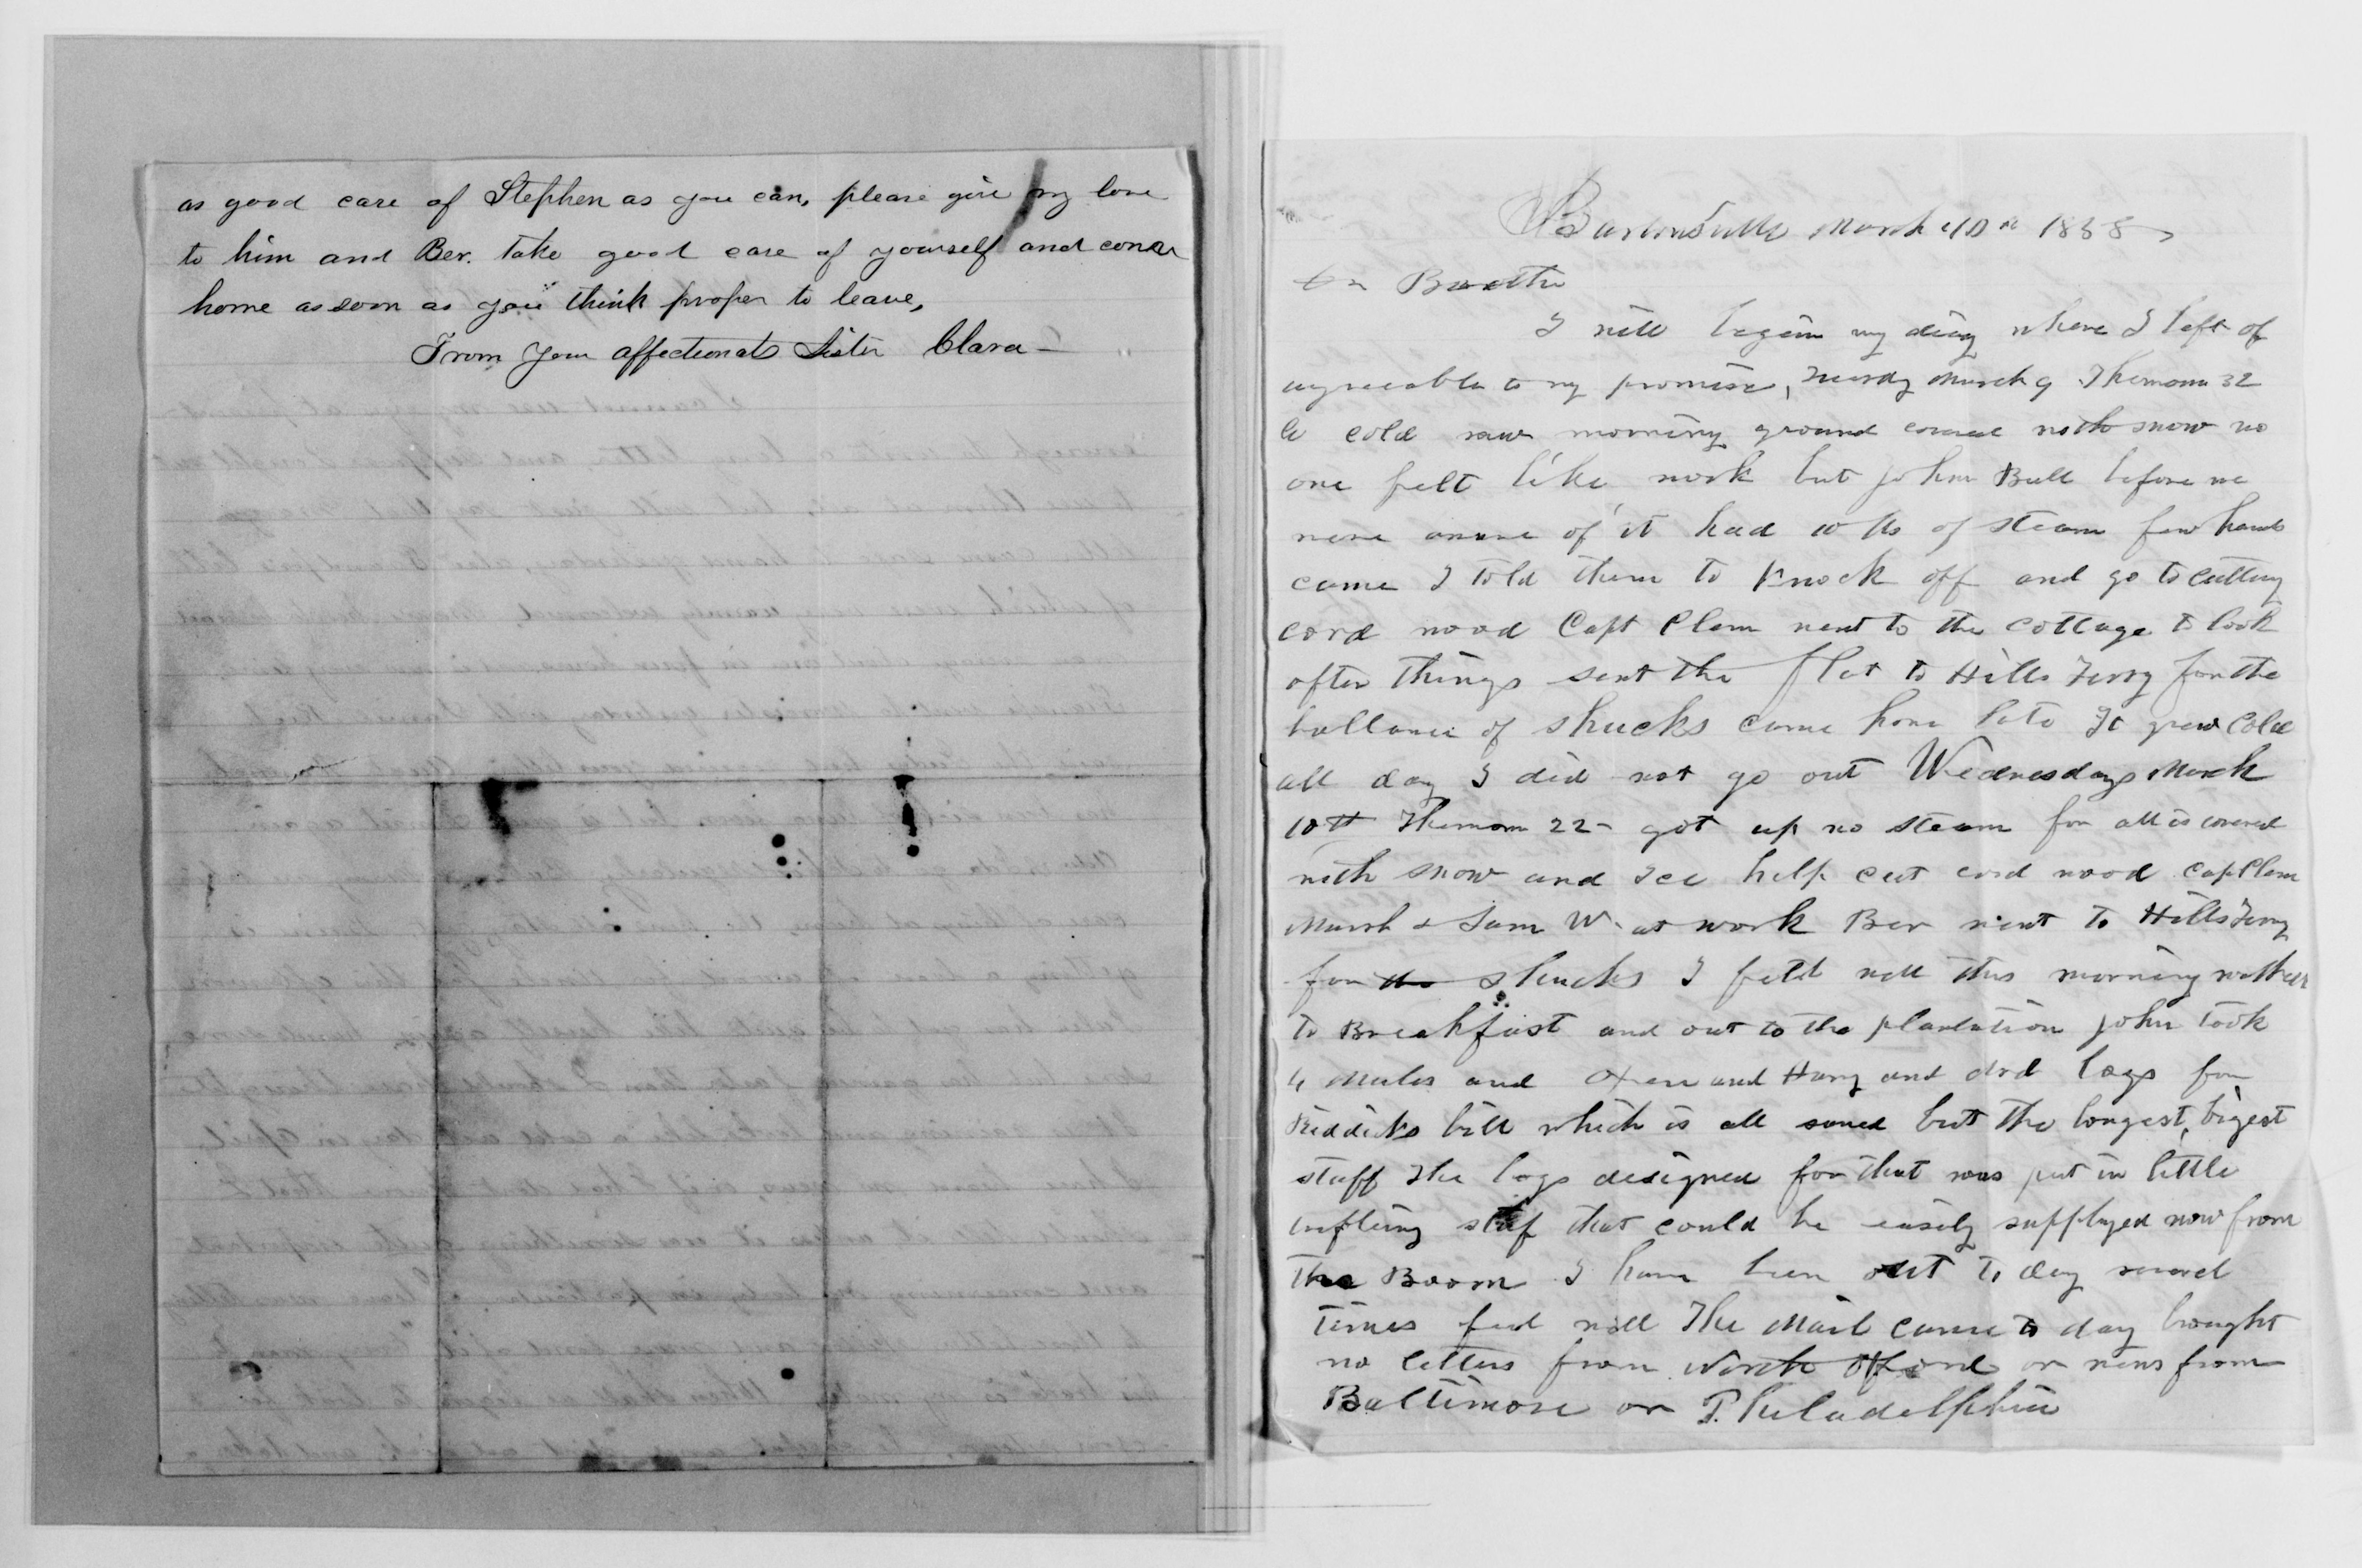 as good care of Stephen as you can, please give my love
to him and Ber. take good care of yourself and come
home as soon as you think proper to leave,
From your affectionate Sister Clara —
Bartonsville March 10th 1858
Dr Brother
I will begin my diary where I left of
agreeable to my promise, Tuesdy March 9 Thermom 32
A cold raw morning ground covered with snow no
one felt like work but John Bull before we
were aware of it had 10 lbs of steam few hands
came I told them to Knock off and go to cutting
cord wood Capt Clem went to the cottage to look
after things sent the flat to Hills Ferry for the
ballance of shucks came home late It grew Cold
all day I did not go out Wednesday March
10th Thermom 22 - got up no steam for all is covered
with snow and Ice help cut cord wood Capt Clem
Marsh & Sam W. at work Ber went to Hills Ferry
for the shucks I feel well this morning walked
to Breakfast and out to the plantation John took
4 Mules and Oxen and Harry and drd logs for
Riddicks bill which is all sawed but the longest, bigest
stuff The logs designed for that was put in little
trifling stuf that could be easily supplyed now from
the Boom I have been out to day several
times feel well The Mail came to day brought
no letters from North Oxford or news from
Baltimore or Philadelphia